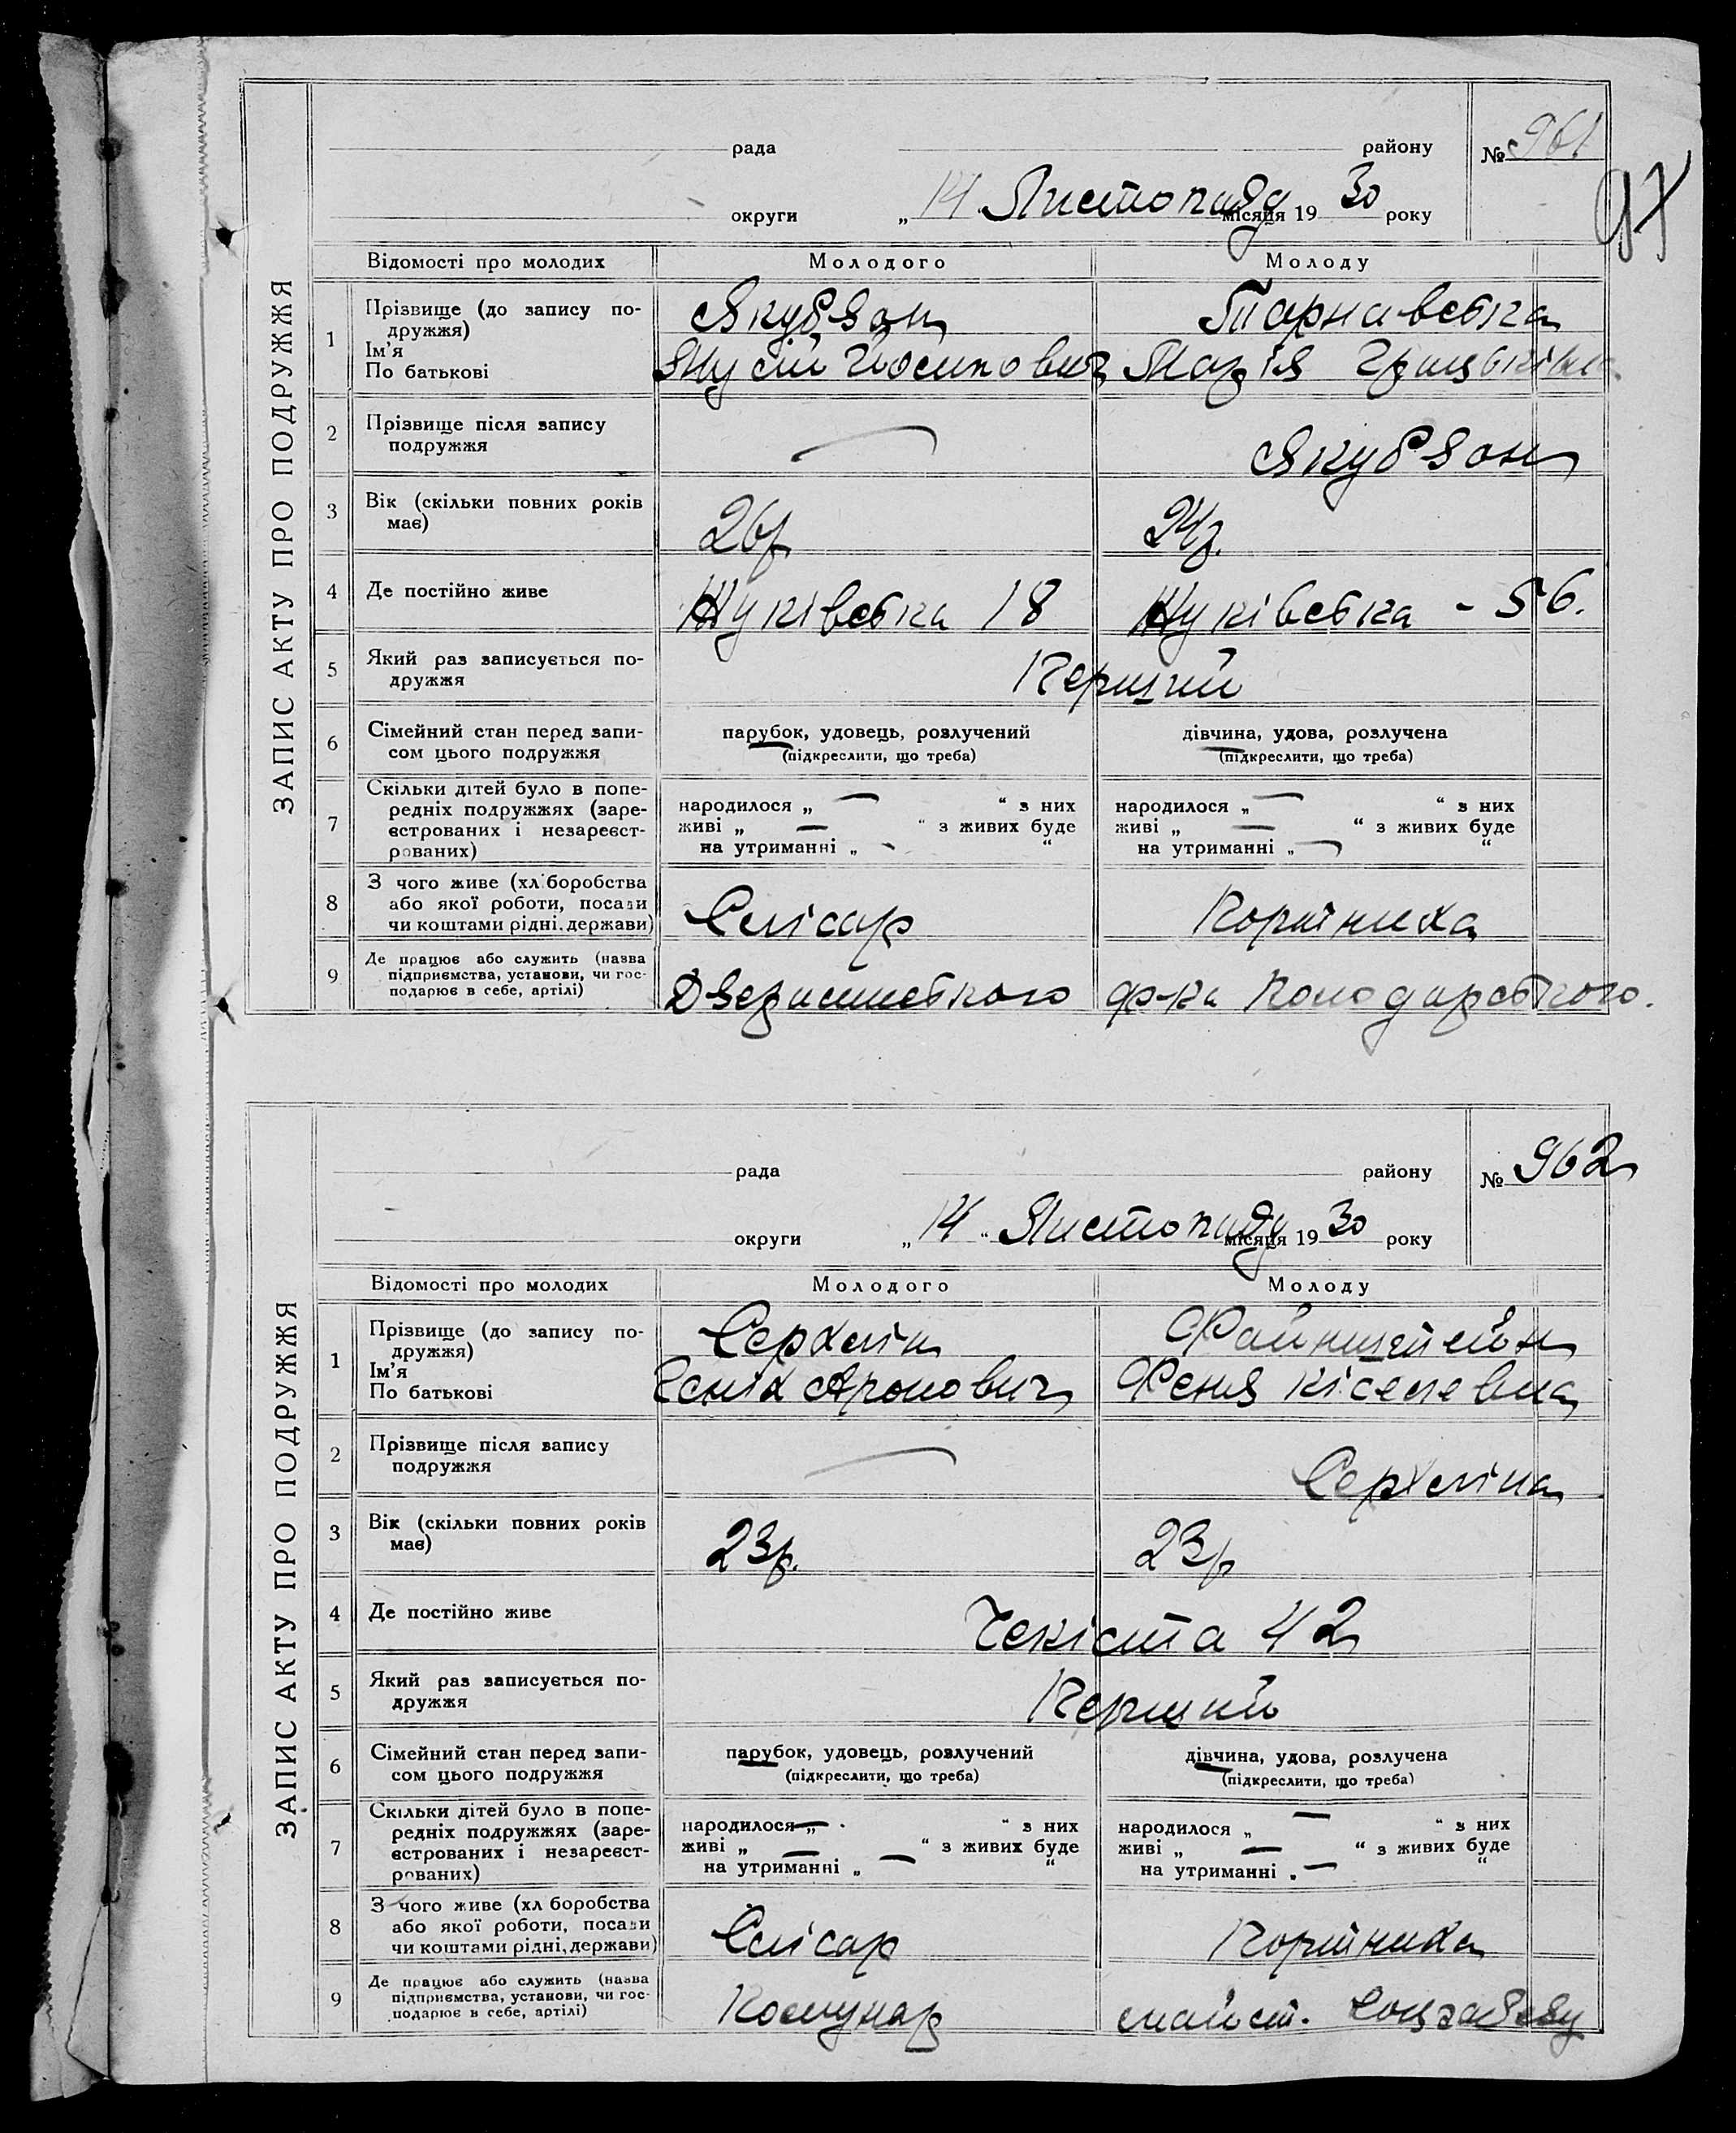 рада району № 961
97
округи „14. Листопаду місяця 1930 року
ЗАПИС АКТУ ПРО ПОДРУЖЖЯ
Відомості про молодих Молодого Молоду
1 Прізвище (до запису по- Якубзон Тарнавська
дружжя)
Ім'я
По батькові Мусій Йосипович Марія
2 Прізвище після запису
подружжя — Якубзон
3 Вік (скільки повних років
має) 26р 24р.
4 Де постійно живе Жуківська 18 Жуківська - 56.
5 Який раз записується по-
дружжя Перший
6 Сімейний стан перед запи- парубок, удовець, розлучений дівчина, удова, розлучена
сом цього подружжя (підкреслити, що треба) (підкреслити, що треба)
7 Скільки дітей було в попе-
редніх подружжях (заре- народилося „ — “ з них народилося „ — “ з них
єстрованих і незареєст- живі „ — “ з живих буде живі „ — “ з живих буде
рованих) на утриманні „ - “ на утриманні „ — “
8 З чого живе (хліборобства
або якої роботи, посади Слісар Портниха
чи коштами рідні, держави)
9 Де працює або служить (назва
підприємства, установи, чи гос- Дзержинського ф-ка Володарського.
подарює в себе, артілі)
рада району № 962
округи „14“ Листопаду місяця 1930 року
ЗАПИС АКТУ ПРО ПОДРУЖЖЯ
Відомості про молодих Молодого Молоду
1 Прізвище (до запису по- Серхлін Файнштейн
дружжя)
Ім'я
По батькові Геніх Аронович Феня Кіселевна
2 Прізвище після запису
подружжя — Серхліна
3 Вік (скільки повних років
має) 23р. 23р
4 Де постійно живе Чекіста 42
5 Який раз записується по-
дружжя Перший
6 Сімейний стан перед запи- парубок, удовець, розлучений дівчина, удова, розлучена
сом цього подружжя (підкреслити, що треба) (підкреслити, що треба)
7 Скільки дітей було в попе-
редніх подружжях (заре- народилося „ — “ з них народилося „ — “ з них
єстрованих і незареєст- живі „ — “ з живих буде живі „ — “ з живих буде
рованих) на утриманні „ — “ на утриманні „ — “
8 З чого живе (хліборобства
або якої роботи, посади Слісар Портниха
чи коштами рідні, держави)
9 Де працює або служить (назва
підприємства, установи, чи гос- Комунар майст. Соцзабезу
подарює в себе, артілі)